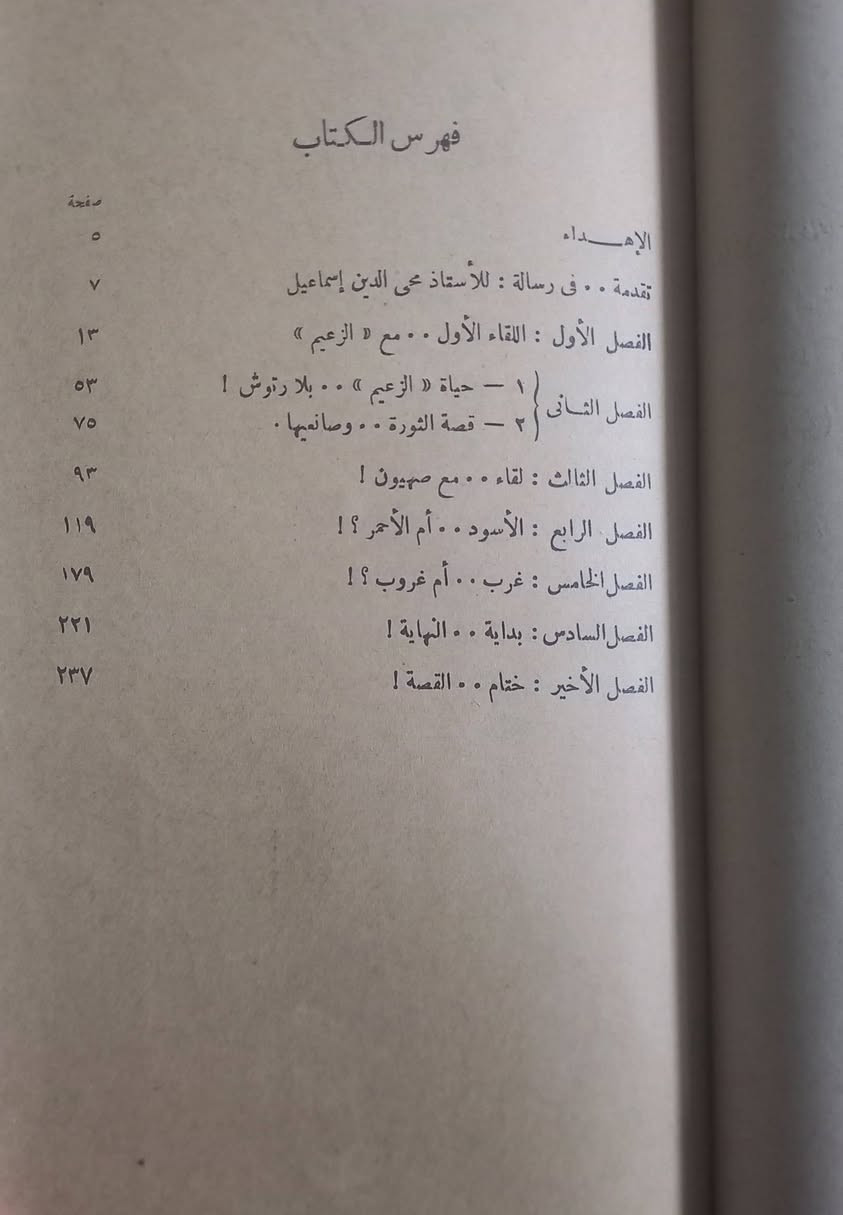 فهرس الكتاب
صفحة
الإهداء ٥
تقدمة ٠٠ فى رسالة : للأستاذ محى الدين إسماعيل ٧
الفصل الأول : اللقاء الأول ٠٠ مع « الزعيم » ١٣
الفصل الثانى { ١ — حياة « الزعيم » ٠٠ بلا رتوش ! ٥٣
٢ — قصة الثورة ٠٠ وصانعيها ٠ ٧٥
الفصل الثالث : لقاء ٠٠ مع صهيون ! ٩٣
الفصل الرابع : الأسود ٠٠ أم الأحمر ؟ ! ١١٩
الفصل الخامس : غرب ٠٠ أم غروب ؟ ! ١٧٩
الفصل السادس : بداية ٠٠ النهاية ! ٢٢١
الفصل الأخير : ختام ٠٠ القصة ! ٢٣٧